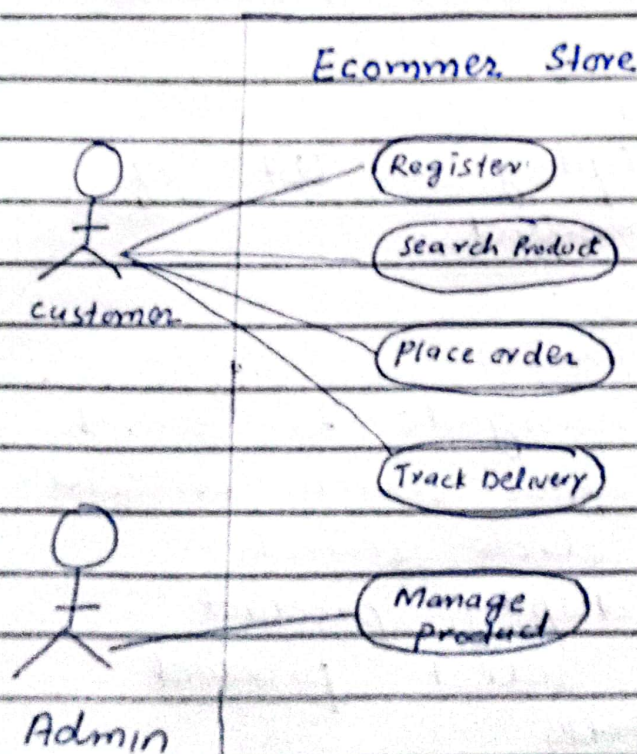 Ecommer Store
Register
Search Product
Customer
Place order
Track Delivery
Manage
Product
Admin